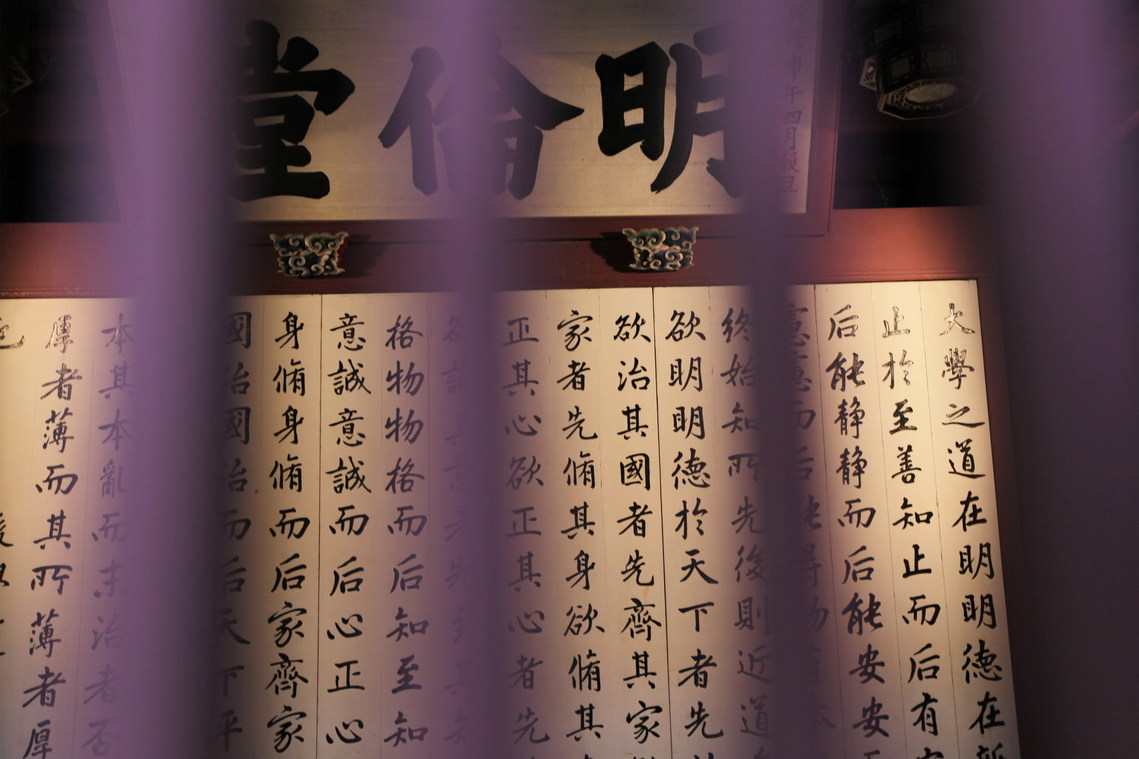 明倫堂
午四月穀旦
大學之道在明明德在新
止於至善知止而后有
后能静静而后能安安
慮慮而后能得物有本
終始知所先後則近道
欲明明德於天下者先
欲治其國者先齊其家
家者先脩其身欲脩其
正其心欲正其心者先
格物物格而后知至知
意誠意誠而后心正心
身脩身脩而后家齊家
國治國治而后天下平
本其本亂而末治者否
厚者薄而其所薄者厚